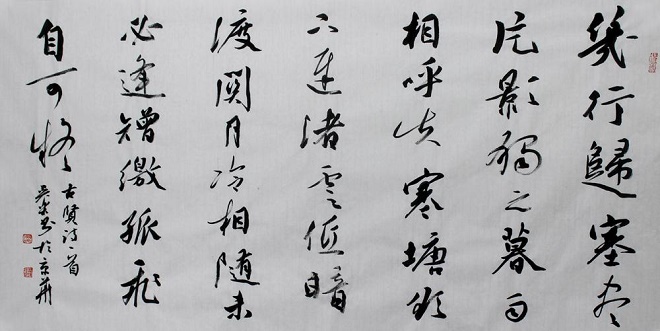 幾行歸塞尽
片影獨之暮雨
相呼失寒塘欲
下遲渚雲低暗
渡関月冷相随未
必逢矰繳孤飛
自可疑
古賢詩一首
書於京華